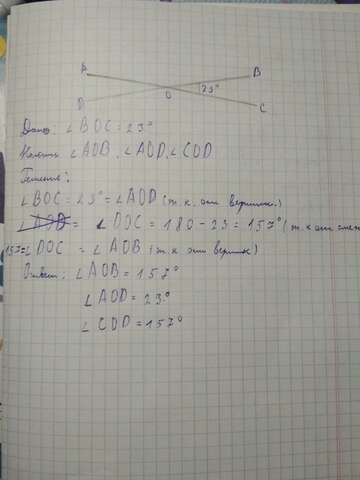 A
B
23°
D
O
C
Дано: ∠BOC = 23°
Найти ∠AOB, ∠AOD, ∠COD
Решение:
∠BOC = 23° = ∠AOD (т.к. они вертик.)
∠AOD = ∠DOC = 180 - 23 = 157° (т.к они смеж
157 = ∠DOC = ∠AOB (т к они вертик)
Ответ: ∠AOB = 157°
∠AOD = 23°
∠COD = 157°